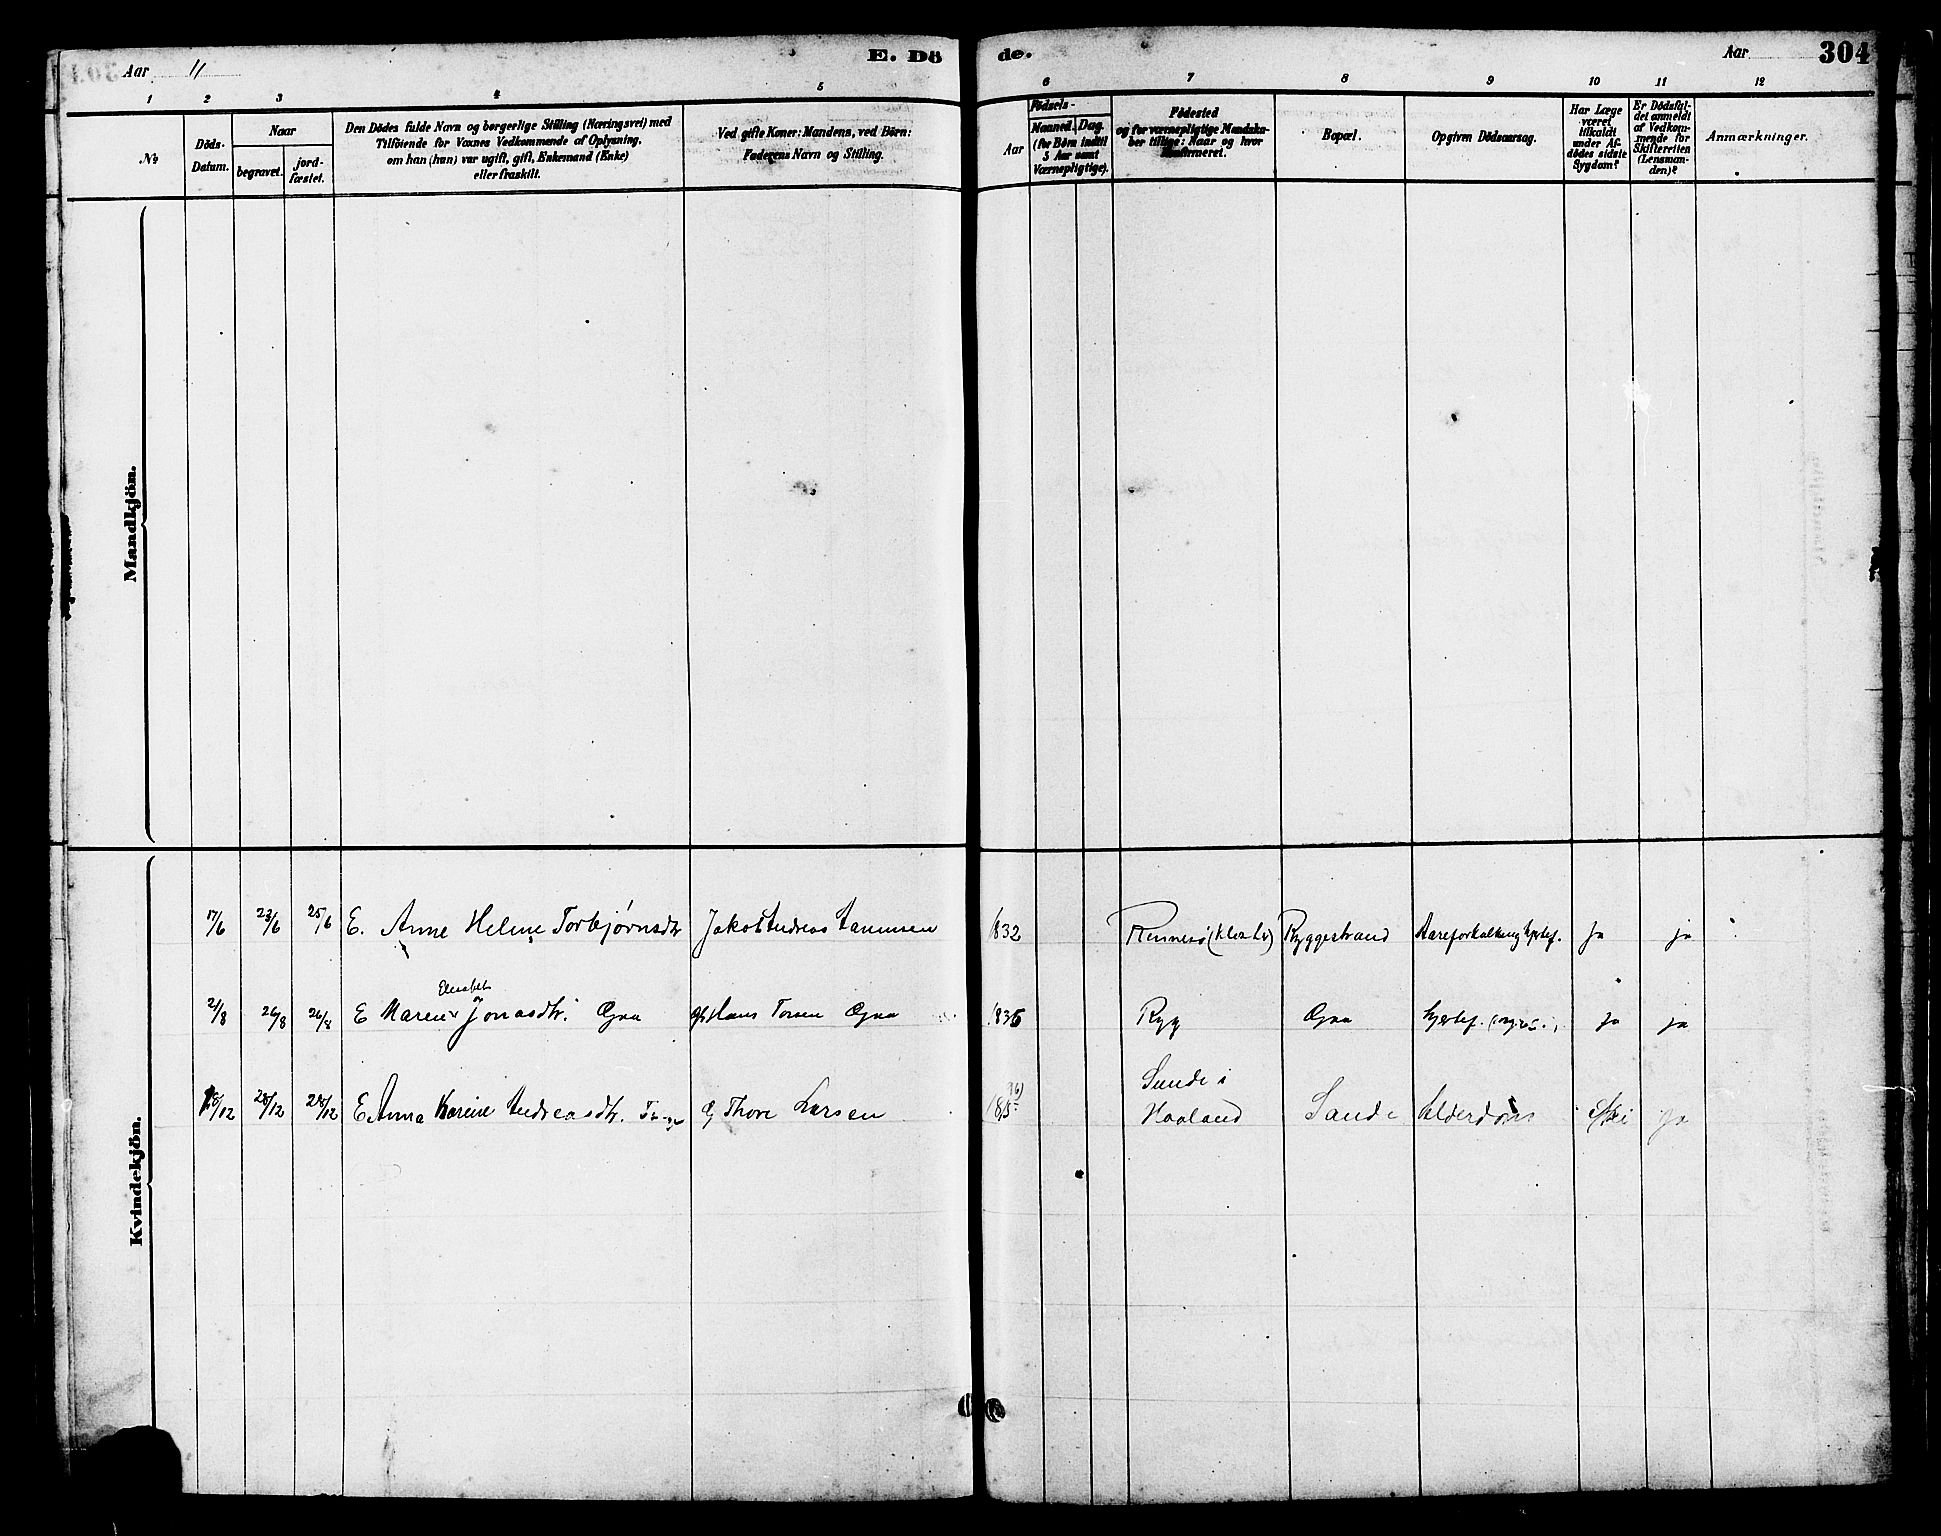 Aar 11
E. Dö
de.
Aar
304
1 2 3 4 5
6 7 8 9 10 11 12
No
Döds-
Datum.
Naar
begravet.
jord-
fæstet.
Den Dödes fulde Navn og borgerlige Stilling (Næringsvei) med
Tilföiende for Voxnes Vedkommende af Oplysning,
om han (hun) var ugift, gift, Enkemand (Enke)
eller fraskilt.
Ved gifte Koner: Mandens, ved Börn:
Faderens Navn og Stilling.
Födsels-
Aar
Maaned. Dag.
(for Börn indtil
5 Aar samt
Værnepligtige).
Födested
og for værnepligtige Mandskaber
tillige: Naar og hvor
konfirmeret.
Bopæl.
Opgiven Dödsaarsag.
Har Læge
været
tilkaldt
under Af-
dödes sidste
Sygdom?
Er Dödsfal-
det anmeldt
af Vedkom-
mende for
Skifteretten
(Lensman-
den)?
Anmærkninger.
Mandkjön.
Kvindekjön.
17/6 23/6 25/6 E. Anne Helene Torbjørnsdtr Jakob Andreas 1832 Rennesö Ryggestrand Aareforkalkning ja ja
Elisabeth
21/8 26/8 26/8 E Maren Jonasdtr. Ogna Hans Torsen Ogna 1835 Ryg Ogna ja ja
Sunde i
18/12 28/12 28/12 E Anna Karine Andreasdtr. Thore Larsen Haaland Sande Alderdom Nei ja